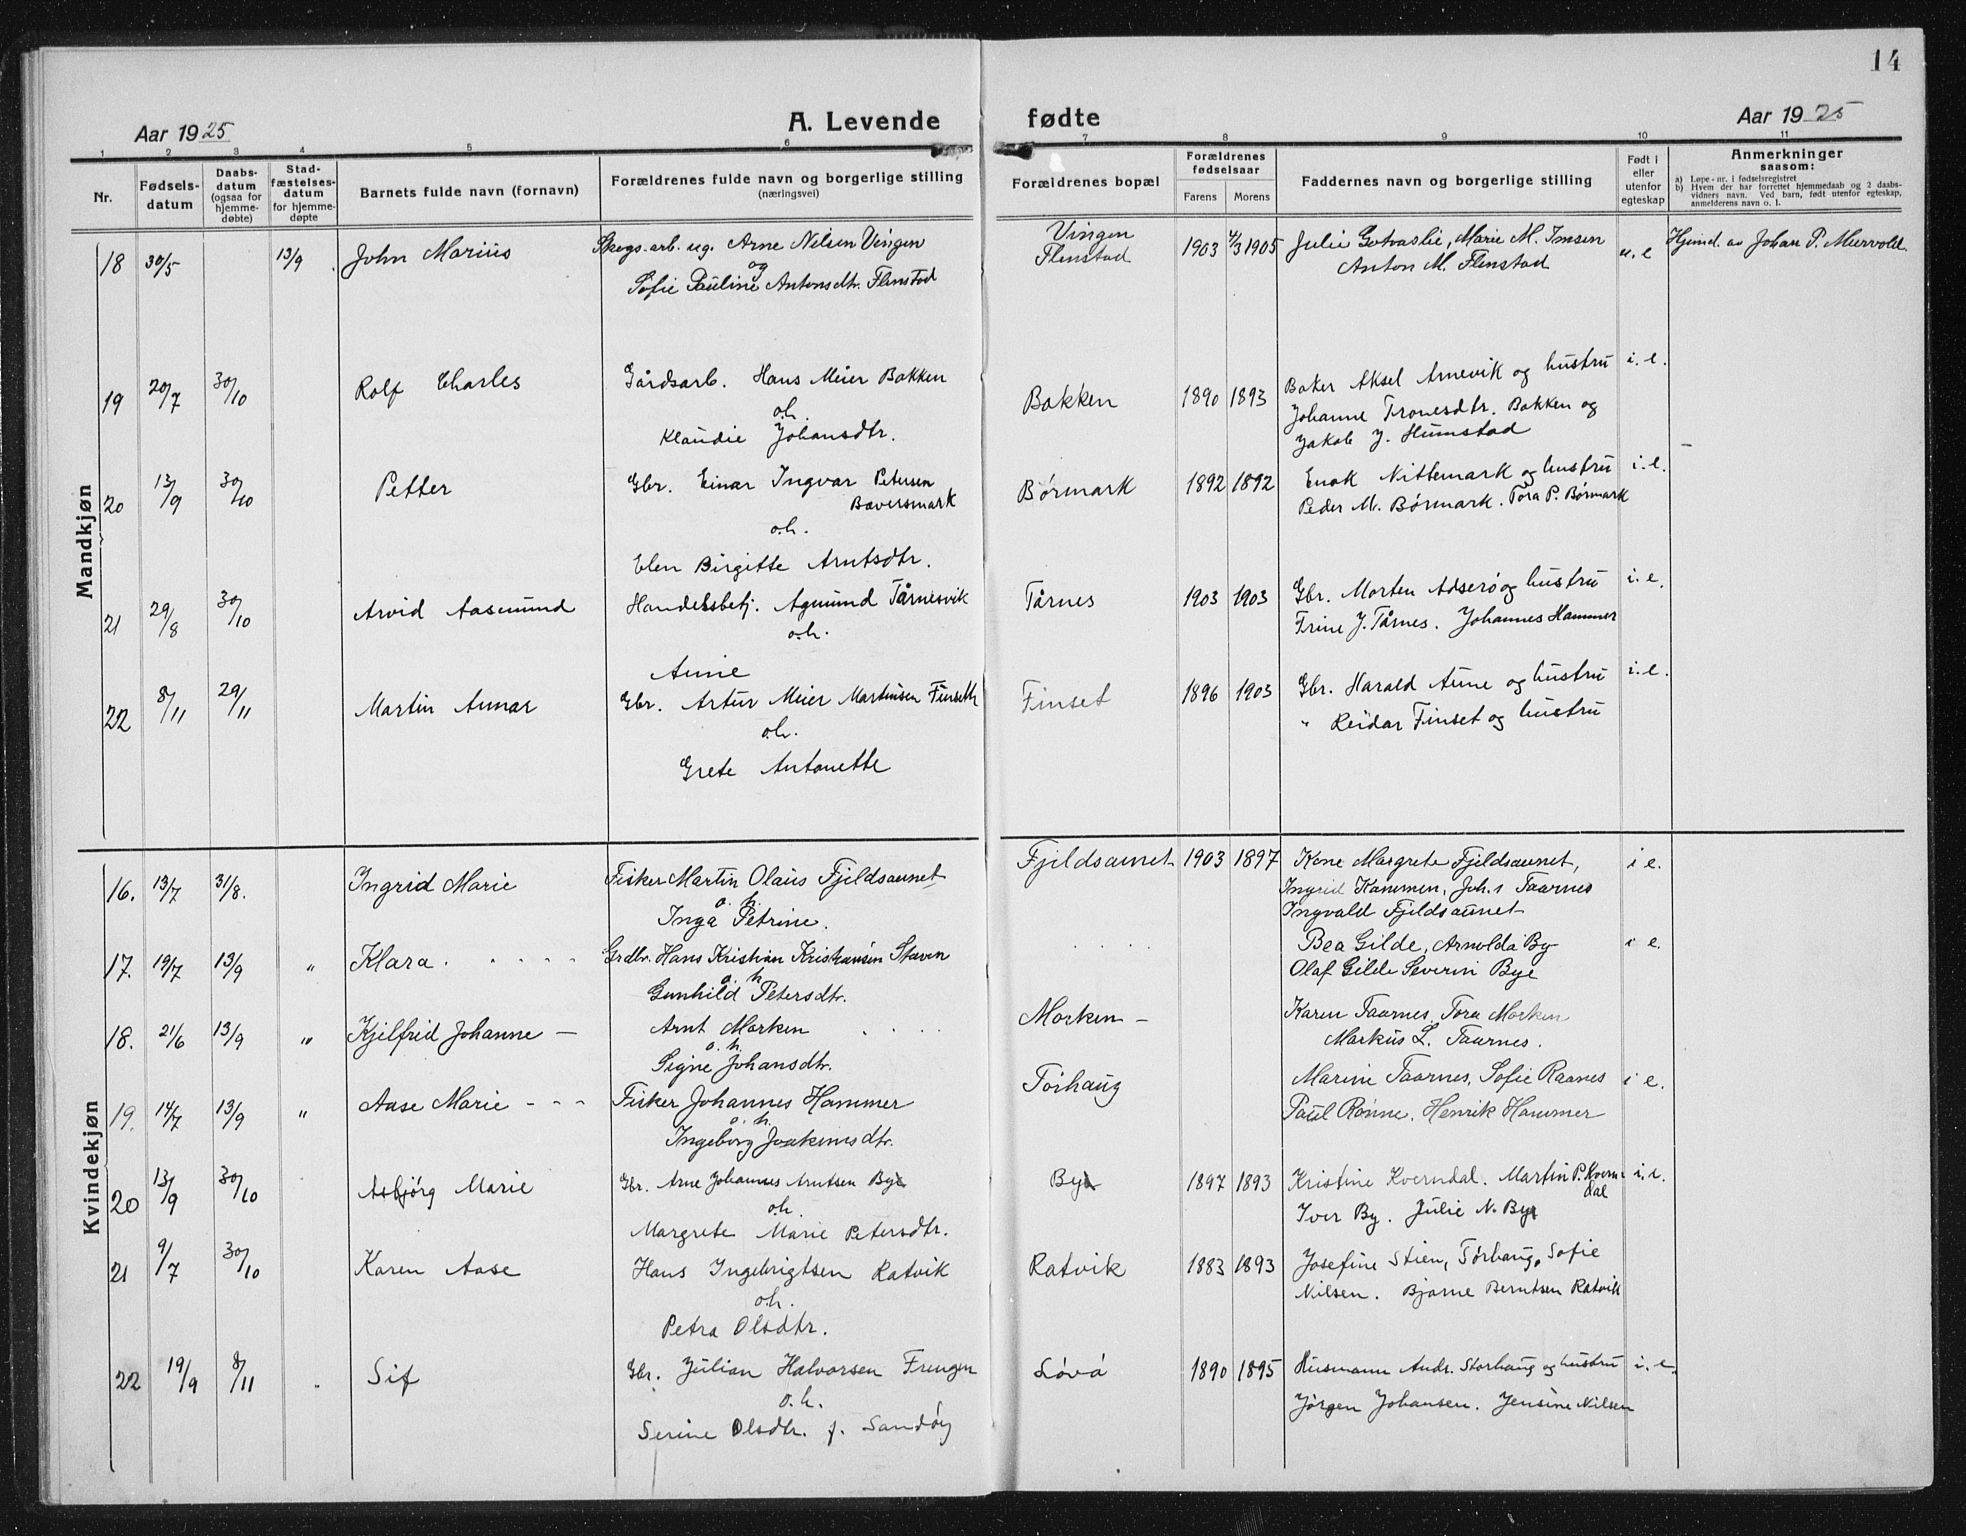 14
Aar 1925 A. Levende fødte Aar 1925
1 2 3 4 5 6 7 8 9 10 11
Nr. Fødselsdatum Daabsdatum (ogsaa for hjemmedøbte) Stadfæstelsesdatum for hjemmedøpte Barnets fulde navn (fornavn) Forældrenes fulde navn og borgerlige stilling (næringsvei) Forældrenes bopæl Forældrenes fødselsaar Farens Morens Faddernes navn og borgerlige stilling Født i eller utenfor egteskap Anmerkninger saasom:
a) Løpe-nr. i fødselsregistret
b) Hvem der har forrettet hjemmedaab og 2 daabsvidners navn. Ved barn, født utenfor egteskap, anmelderens navn o. l.
Mandkjøn
18 30/5 13/9 John Marius Skogs.arb. ug. Arne Nilsen Vingen Vingen 1903 4/3 1905 Julie Gotvaslie, Marie M. Imsen u. e Hjemd. av Johan P. Murvold
og Flenstad Anton M. Flenstad
Sofie Pauline Antonsdtr. Flenstad
19 20/7 30/10 Rolf Charles Gårdsarb. Hans Meier Bakken Bakken 1890 1893 Baker Aksel Arnevik og hustru i. e.
o.h. Johanne Tronesdtr. Bakken og
Klaudie Johansdtr. Jakob J. Humstad
20 13/9 30/10 Petter Gbr. Einar Ingvar Petersen Børmark 1892 1892 Enok Nittemark og hustru i. e.
Bæversmark Peder M. Børmark. Tora P. Børmark
o.h.
Elen Birgitte Arntsdtr.
21 29/8 30/10 Arvid Aasmund Handelsbetj. Agmund Tårnesvik Tårnes 1903 1903 Gbr. Morten Adserø og hustru i. e.
o.h. Trine J. Tårnes. Johannes Hammer
Anne
22 8/11 29/11 Martin Annar Gbr. Artur Meier Martinsen Finseth Finset 1896 1903 Gbr. Harald Aune og hustru i. e.
o.h. " Reidar Finset og hustru
Grete Antonette
Kvindekjøn
16. 13/7 31/8. Ingrid Marie Fisker Martin Olaus Fjeldsaunet Fjeldsaunet 1903 1897 Kone Margrete Fjeldsaunet, i e.
o. h. Ingrid Kammen, Joh.s Taarnes
Inga Petrine. Ingvald Fjeldsaunet
17. 19/7 13/9 " Klara Grdbr. Hans Kristian Kristiansen Staven Bea Gilde, Arnolda By i e.
o. h. Olaf Gilde Severin Bye
Gunhild Petersdtr.
18. 21/6 13/9 " Kjelfrid Johanne — Arnt Morken Morken — Karen Taarnes, Tora Morken
o. h. Markus L. Taarnes.
Signe Johansdtr.
19. 14/7 13/9 " Aase Marie - - - Fisker Johannes Hammer Torhaug Marine Taarnes, Sofie Raanes i e.
o. h. Paul Rønne, Henrik Hammer
Ingeborg Joakimsdtr.
20 13/9 30/10 Asbjørg Marie Gbr. Arne Johannes Arntsen By By 1897 1893 Kristine Kverndal. Martin P. Kverndal i. e.
o.h. Iver By. Julie N. By
Margrete Marie Petersdtr.
21 9/7 30/10 Karen Aase Hans Ingebrigtsen Ratvik Ratvik 1883 1893 Josefine Stien, Tørhaug, Sofie
o.h. Nilsen. Bjarne Berntsen Ratvik
Petra Olsdtr.
22 19/9 8/11 Sif Gbr. Julian Halvorsen Frengen Løvø 1890 1895 Husmann Andr. Storhaug og hustru i. e.
o.h. Jørgen Johansen. Jensine Nilsen
Serine Olsdtr. f. Sandøy